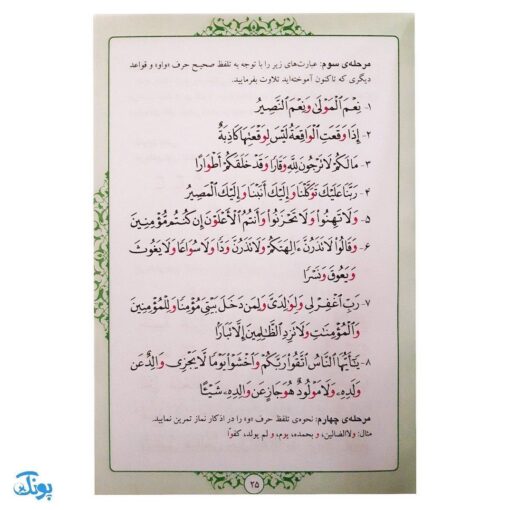 مرحله‌ی سوم: عبارت‌های زیر را با توجه به تلفظ صحیح حرف «واو» و قواعد
دیگری که تاکنون آموخته‌اید تلاوت بفرمایید.
۱- نِعْمَ الْمَوْلَىٰ وَنِعْمَ النَّصِيرُ
۲- إِذَا وَقَعَتِ الْوَاقِعَةُ لَيْسَ لِوَقْعَتِهَا كَاذِبَةٌ
۳- مَا لَكُمْ لَا تَرْجُونَ لِلَّهِ وَقَارًا وَقَدْ خَلَقَكُمْ أَطْوَارًا
۴- رَبَّنَا عَلَيْكَ تَوَكَّلْنَا وَإِلَيْكَ أَنَبْنَا وَإِلَيْكَ الْمَصِيرُ
۵- وَلَا تَهِنُوا وَلَا تَحْزَنُوا وَأَنْتُمُ الْأَعْلَوْنَ إِنْ كُنْتُمْ مُؤْمِنِينَ
۶- وَقَالُوا لَا تَذَرُنَّ ءَالِهَتَكُمْ وَلَا تَذَرُنَّ وَدًّا وَلَا سُوَاعًا وَلَا يَغُوثَ
وَيَعُوقَ وَنَسْرًا
۷- رَبِّ اغْفِرْ لِي وَلِوَٰلِدَيَّ وَلِمَنْ دَخَلَ بَيْتِيَ مُؤْمِنًا وَلِلْمُؤْمِنِينَ
وَالْمُؤْمِنَٰتِ وَلَا تَزِدِ الظَّالِمِينَ إِلَّا تَبَارًا
۸- يَٰٓأَيُّهَا النَّاسُ اتَّقُوا رَبَّكُمْ وَاخْشَوْا يَوْمًا لَا يَجْزِي وَالِدٌ عَنْ
وَلَدِهِ وَلَا مَوْلُودٌ هُوَ جَازٍ عَنْ وَالِدِهِ شَيْئًا
مرحله‌ی چهارم: نحوه‌ی تلفظ حرف «و» را در اذکار نماز تمرین نمایید.
مثال: ولاالضالین، و بحمده، یوم، و لم یولد، کفوًا
۲۵
پونک